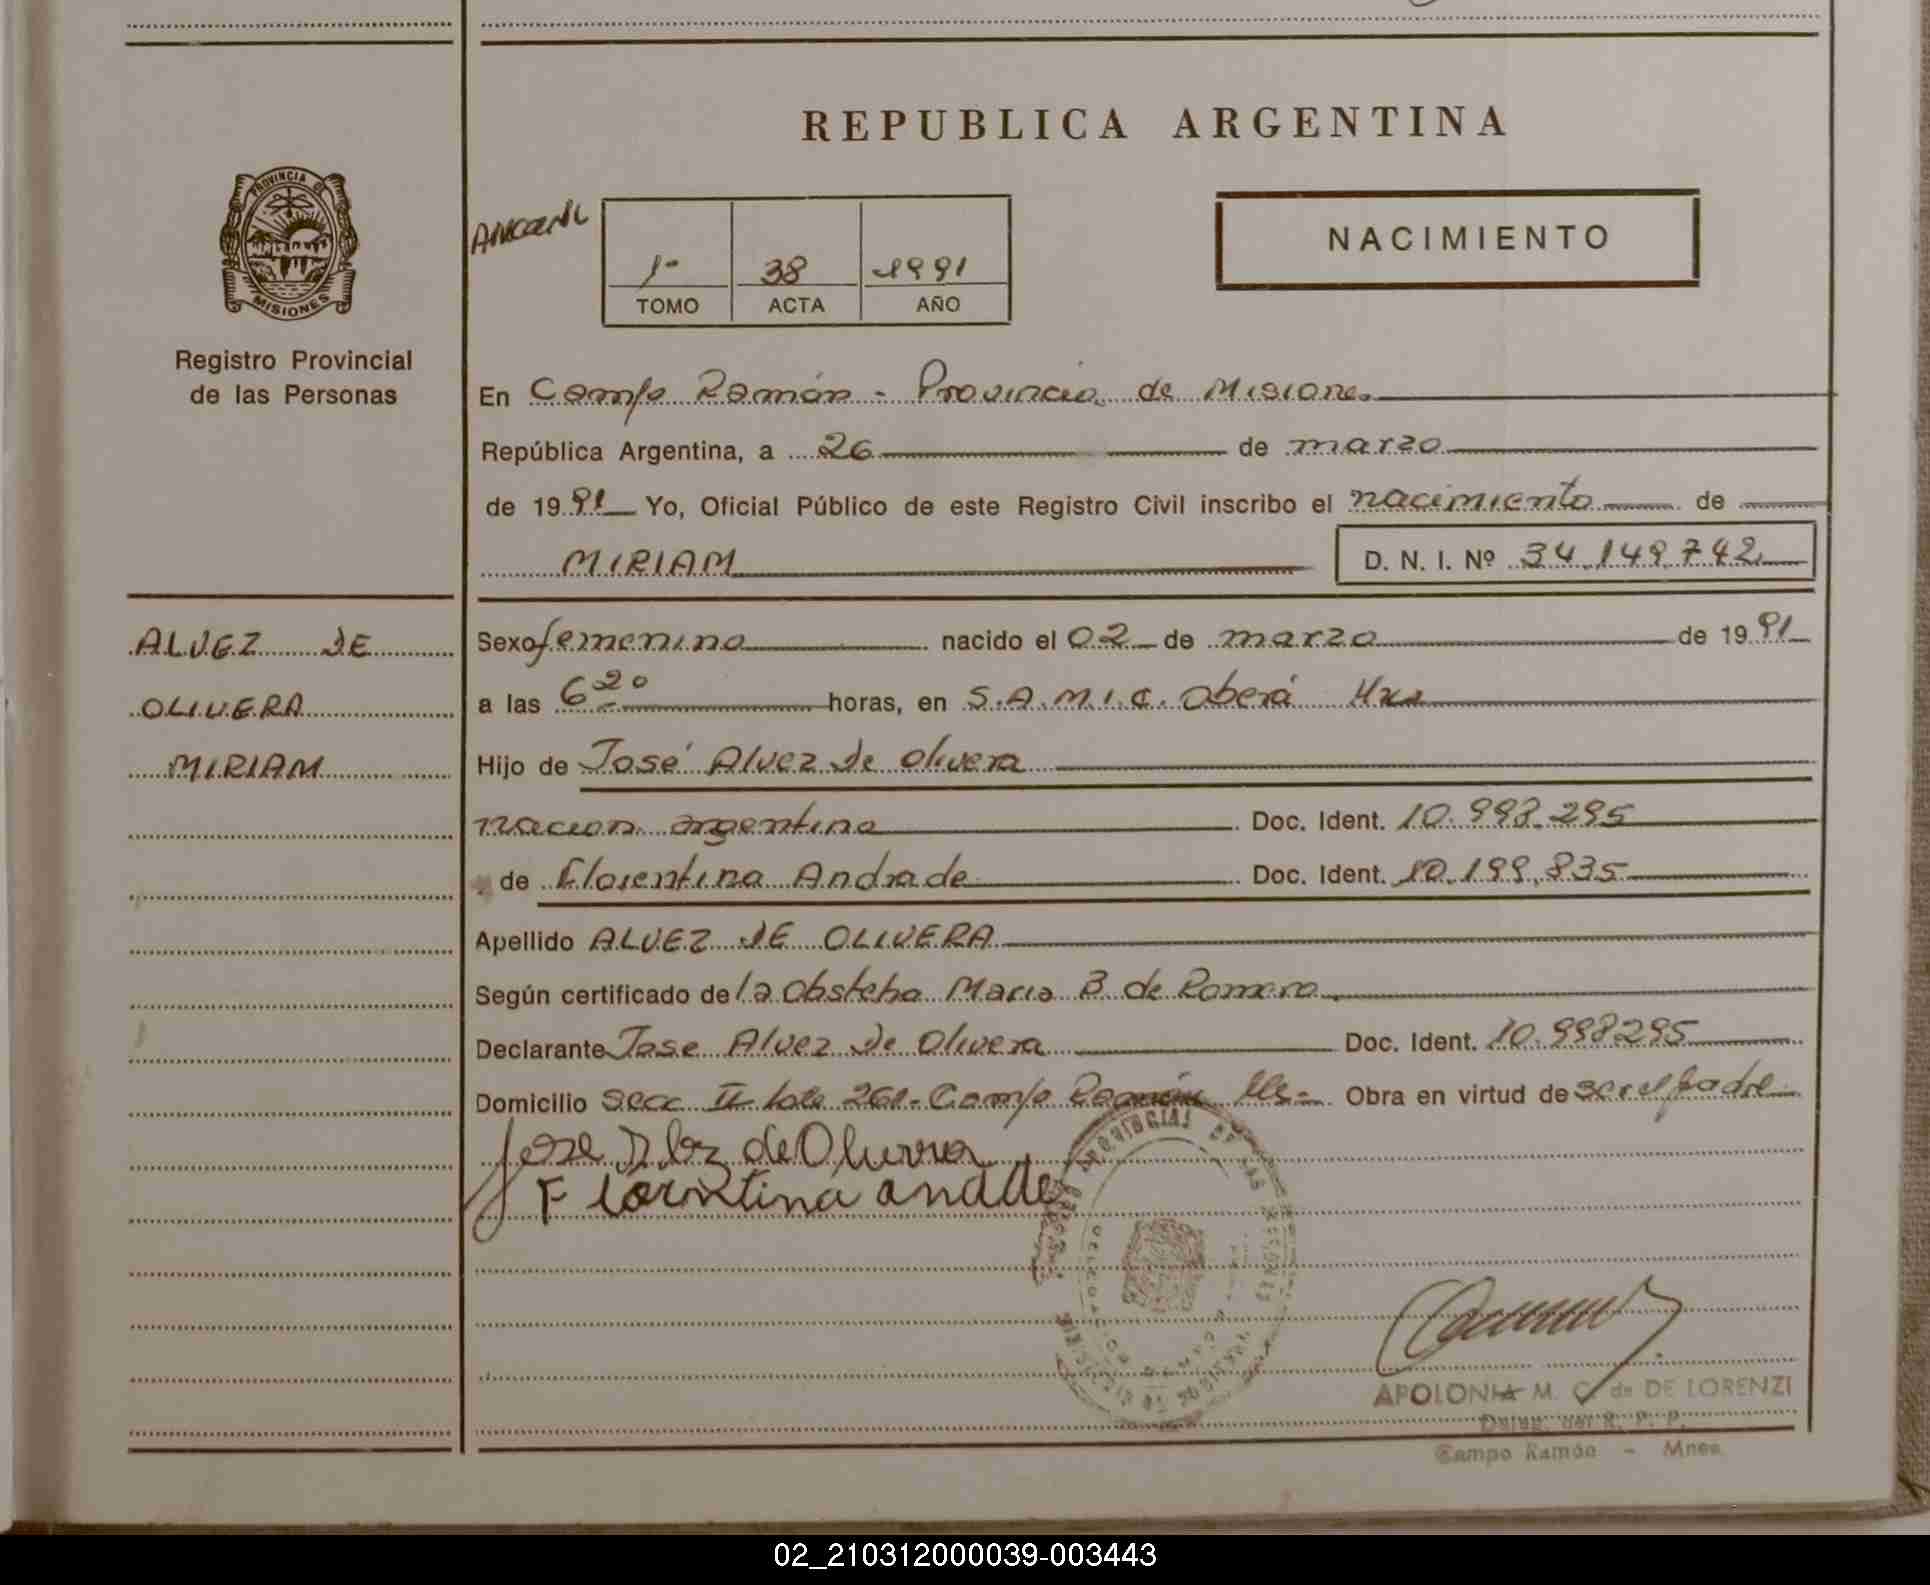 REPUBLICA ARGENTINA
PROVINCIA DE
MISIONES
Registro Provincial
de las Personas
1º 38 1991
TOMO ACTA AÑO
NACIMIENTO
En Campo Ramón - Provincia de Misiones
República Argentina, a 26 de marzo
de 1991 Yo, Oficial Público de este Registro Civil inscribo el nacimiento de
MIRIAM D. N. I. Nº 34.149.742
ALVEZ DE
OLIVERA
MIRIAM
Sexo femenino nacido el 02 de marzo de 1991
a las 6 20 horas, en S.A.M.I.C. Oberá
Hijo de José Alvez de Olivera
nacion argentina Doc. Ident. 10.993.295
de Florentina Andrade Doc. Ident. 10.199.835
Apellido ALVEZ DE OLIVERA
Según certificado de la Obstetra Maria B de Romero
Declarante Jose Alvez de Olivera Doc. Ident. 10.993295
Domicilio Secc II lote 260 - Campo Ramón Obra en virtud de ser el padre
Jose de Olivera
Florintina
APOLONIA M. C. de DE LORENZI
Deleg. del R. P. P.
Campo Ramón - Mnes.
02_210312000039-003443